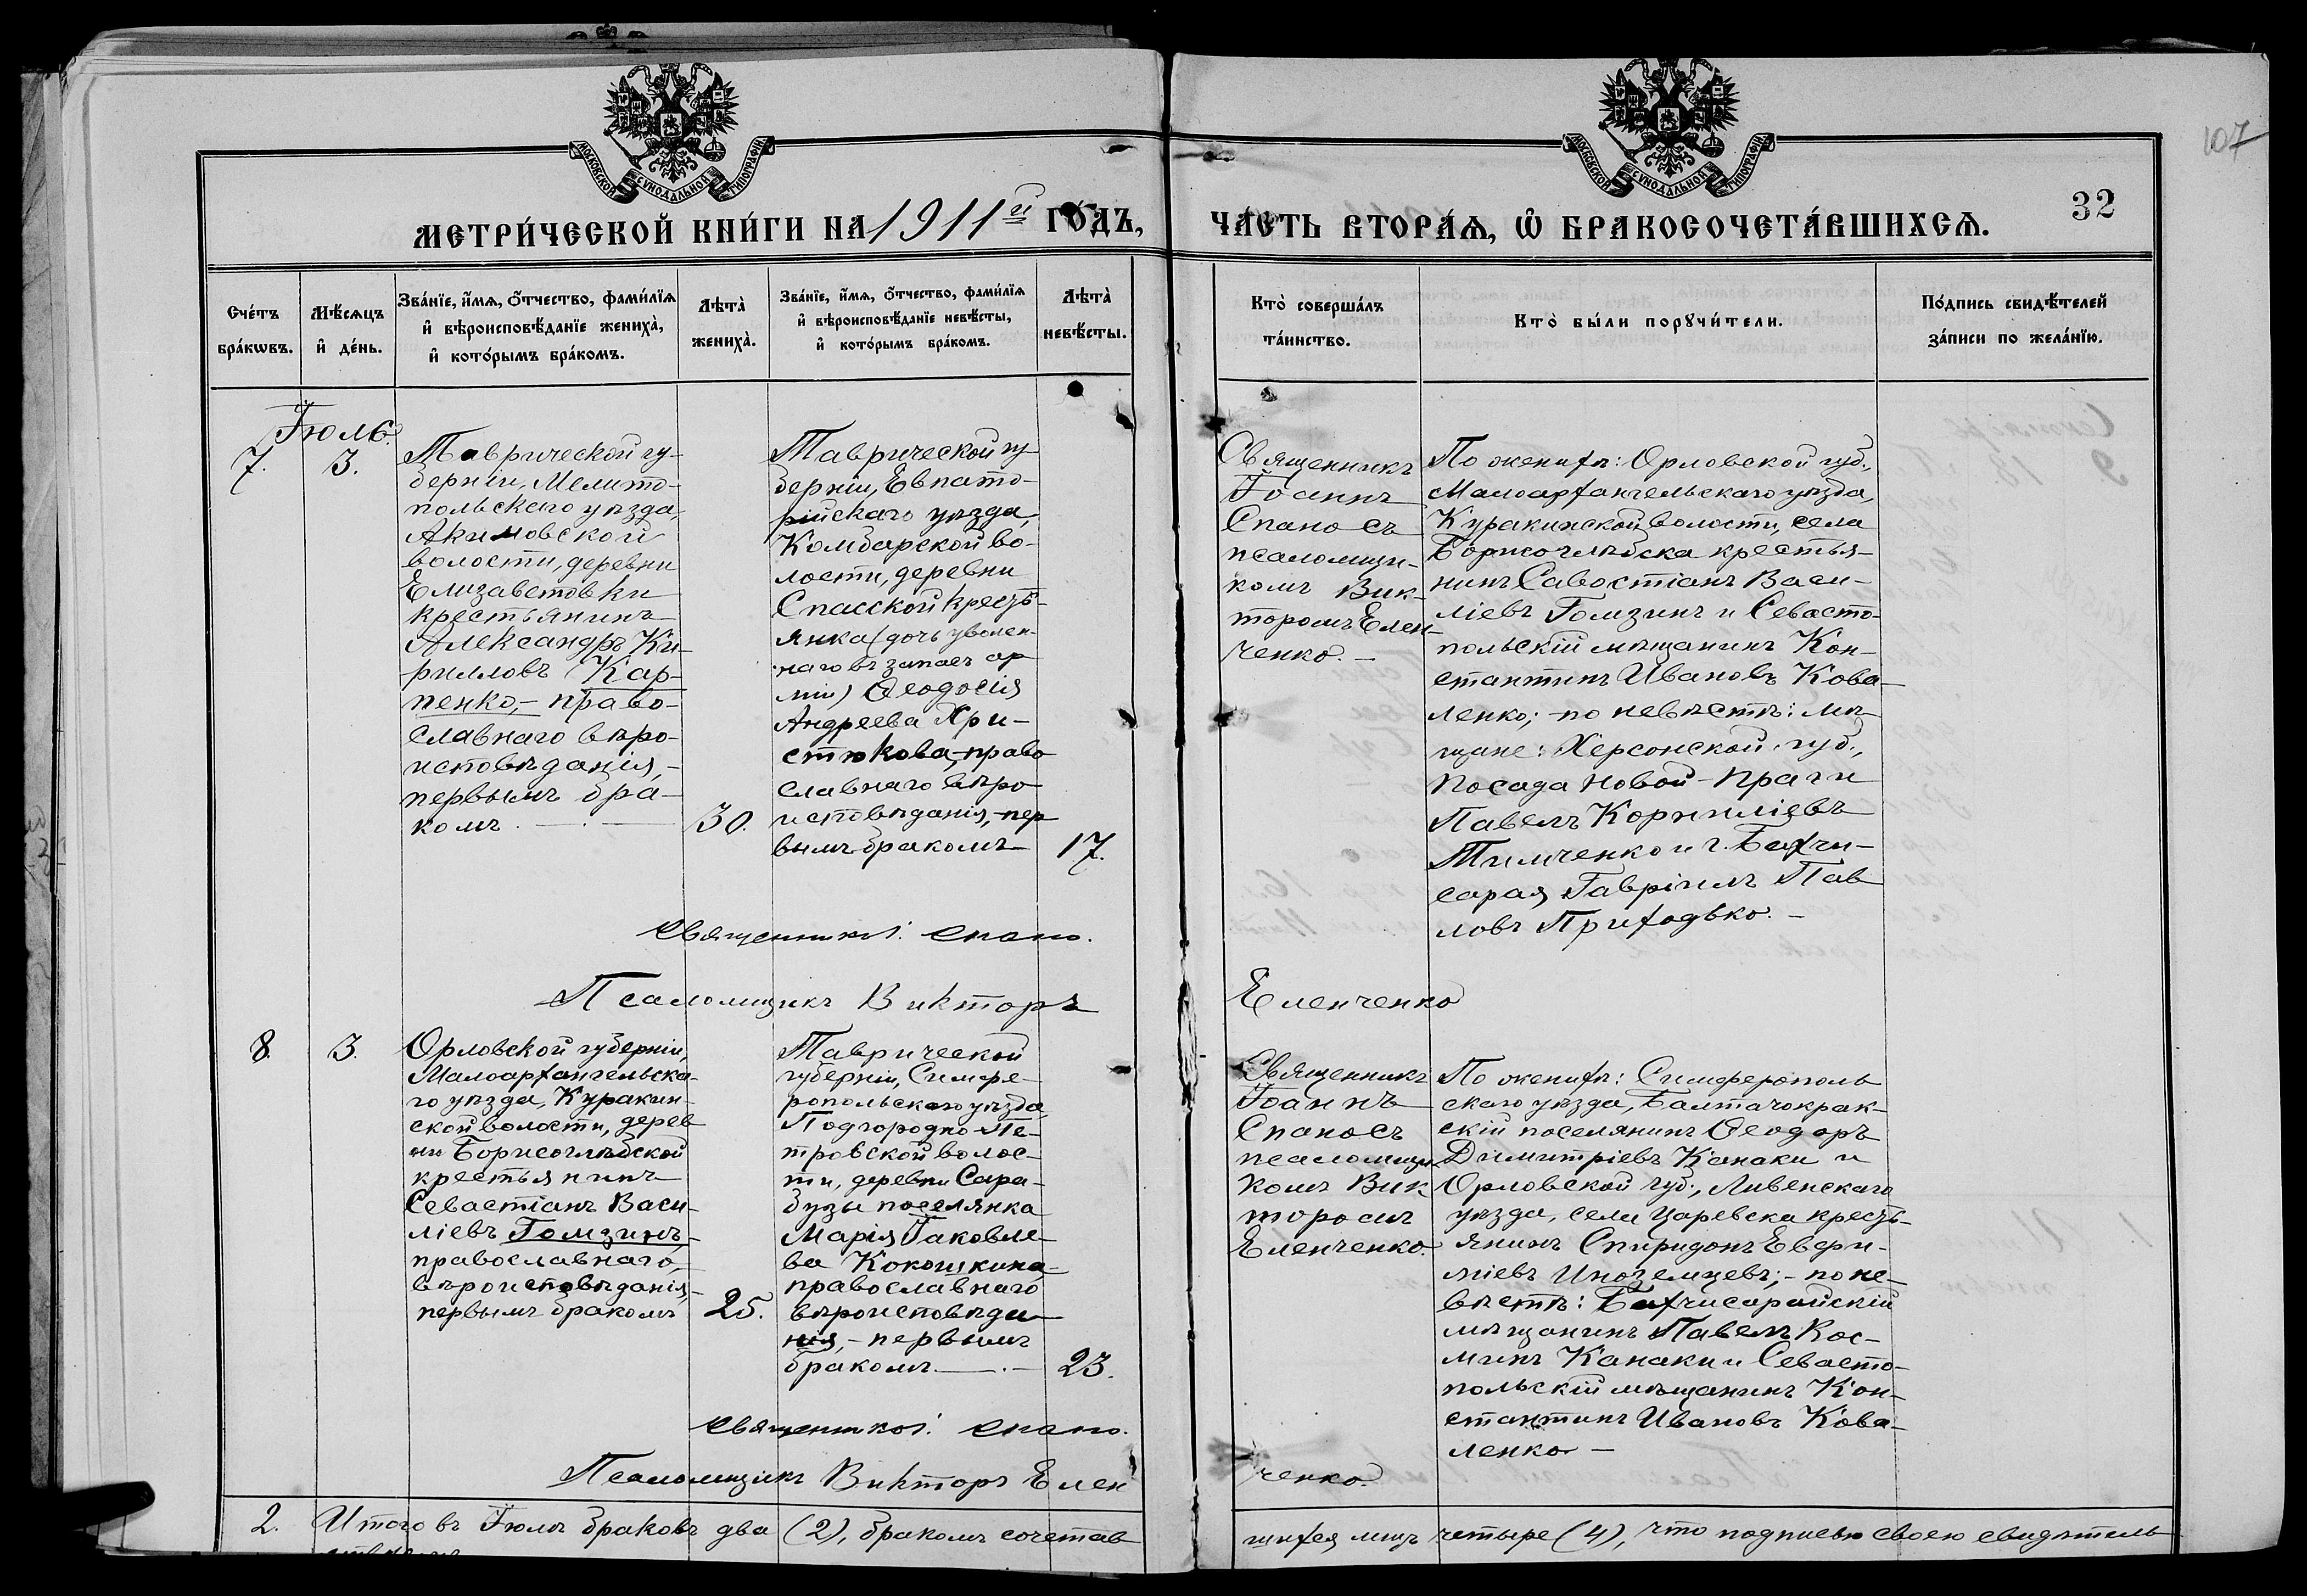 МОСКОВСКОЙ СѴНОДАЛЬНОЙ ТИПОГРАФІИ
МОСКОВСКОЙ СѴНОДАЛЬНОЙ ТИПОГРАФІИ
107
32
МЕТРИ́ЧЕСКОЙ КНИ́ГИ НА 1911й ГО́ДЪ,
ЧА́СТЬ ВТОРА́Ѧ, Ѡ҆ БРАКОСОЧЕТА́ВШИХСѦ.
Сче́тъ
бра́кѡвъ.
Мѣ́сѧцъ
и҆ де́нь.
Зва́нїе, и҆́мѧ, ѻ҆́тчество, фами́лїѧ
и҆ вѣроисповѣ́данїе жениха̀,
и҆ кото́рымъ бра́комъ.
Лѣ́та̀
жениха̀.
Зва́нїе, и҆́мѧ, ѻ҆́тчество, фами́лїѧ
и҆ вѣроисповѣ́данїе невѣ́сты,
и҆ кото́рымъ бра́комъ.
Лѣ́та̀
невѣ́сты.
Кто̀ соверша́лъ
та́инство.
Кто̀ бы́ли порꙋчи́тели.
По́дпись свидѣ́телей
за́писи по жела́нїю.
Іюль.
7.
3.
Таврической гу-
берніи, Мелито-
польскаго уѣзда,
Акимовской
волости, деревни
Елизаветовки
крестьянинъ
Александръ Ки-
рилловъ Кар-
пенко,- право-
славнаго вѣро-
исповѣданія,-
первымъ бра-
комъ.
30.
Таврической гу-
берніи, Евпато-
рійскаго уѣзда,
Комбарской во-
лости, деревни
Спасской кресть-
янка (дочь уволен-
наго въ запасъ ар
міи) Ѳеодосія
Андреева Хри-
стюкова, право
славнаго вѣро
исповѣданія,-пер
вымъ бракомъ
17.
Священникъ
Іоаннъ
Спано съ
псаломщи-
комъ Вик-
торомъ Елен-
ченко.-
По женихѣ: Орловской губ.,
Малоархангельскаго уѣзда,
Куракинской волости, села
Борисоглѣбска крестья-
нинъ Савостіанъ Васи-
ліевъ Гомзинъ и Севасто-
польскій мѣщанинъ Кон-
стантинъ Ивановъ Кова-
ленко;-по невѣстѣ: мѣ-
щане: Херсонской губ.,
посада Новой-Праги
Павелъ Корниліевъ
Тимченко и г. Бахчи-
сарая Гавріилъ Пав
ловъ Приходько.-
Священникъ І. Спано.
Псаломщикъ Викторъ
Еленченко
8.
3.
Орловской губерніи,
Малоархангельска-
го уѣзда, Куракин-
ской волости, дерев
ни Борисоглѣбской
крестьянинъ
Севастіанъ Васи-
ліевъ Гомзинъ-
православнаго,
вѣроисповѣданія,-
первымъ бракомъ
25.
Таврической
губерніи, Симфе-
ропольскаго уѣзда,
Подгородно-Пе-
тровской волос-
ти, деревни Сара-
бузы поселянка
Марія Іаковле-
ва Кокошкина,
православнаго
вѣроисповѣда
нія,-первымъ
бракомъ.
23.
Священникъ
Іоаннъ
Спано съ
псаломщи
комъ Вик
торомъ
Еленченко.
По женихѣ: Симферополь
скаго уѣзда, Балтачокрак-
скій поселянинъ Ѳеодоръ
Димитріевъ Канаки и
Орловской губ., Ливенскаго
уѣзда, села Царевска кресть-
янинъ Спиридонъ Евфи-
міевъ Иноземцевъ;-по не-
вѣстѣ: Бахчисарайскій
мѣщанинъ Павелъ Кос-
минъ Канаки и Севасто-
польскій мѣщанинъ Кон-
стантинъ Ивановъ Кова-
ленко-
Священникъ І. Спано.
Псаломщикъ Викторъ Елен
ченко.
2. Итого въ Іюлѣ браковъ два (2), бракомъ сочетав
шихся лицъ четыре (4), что подписью своею свидѣтель